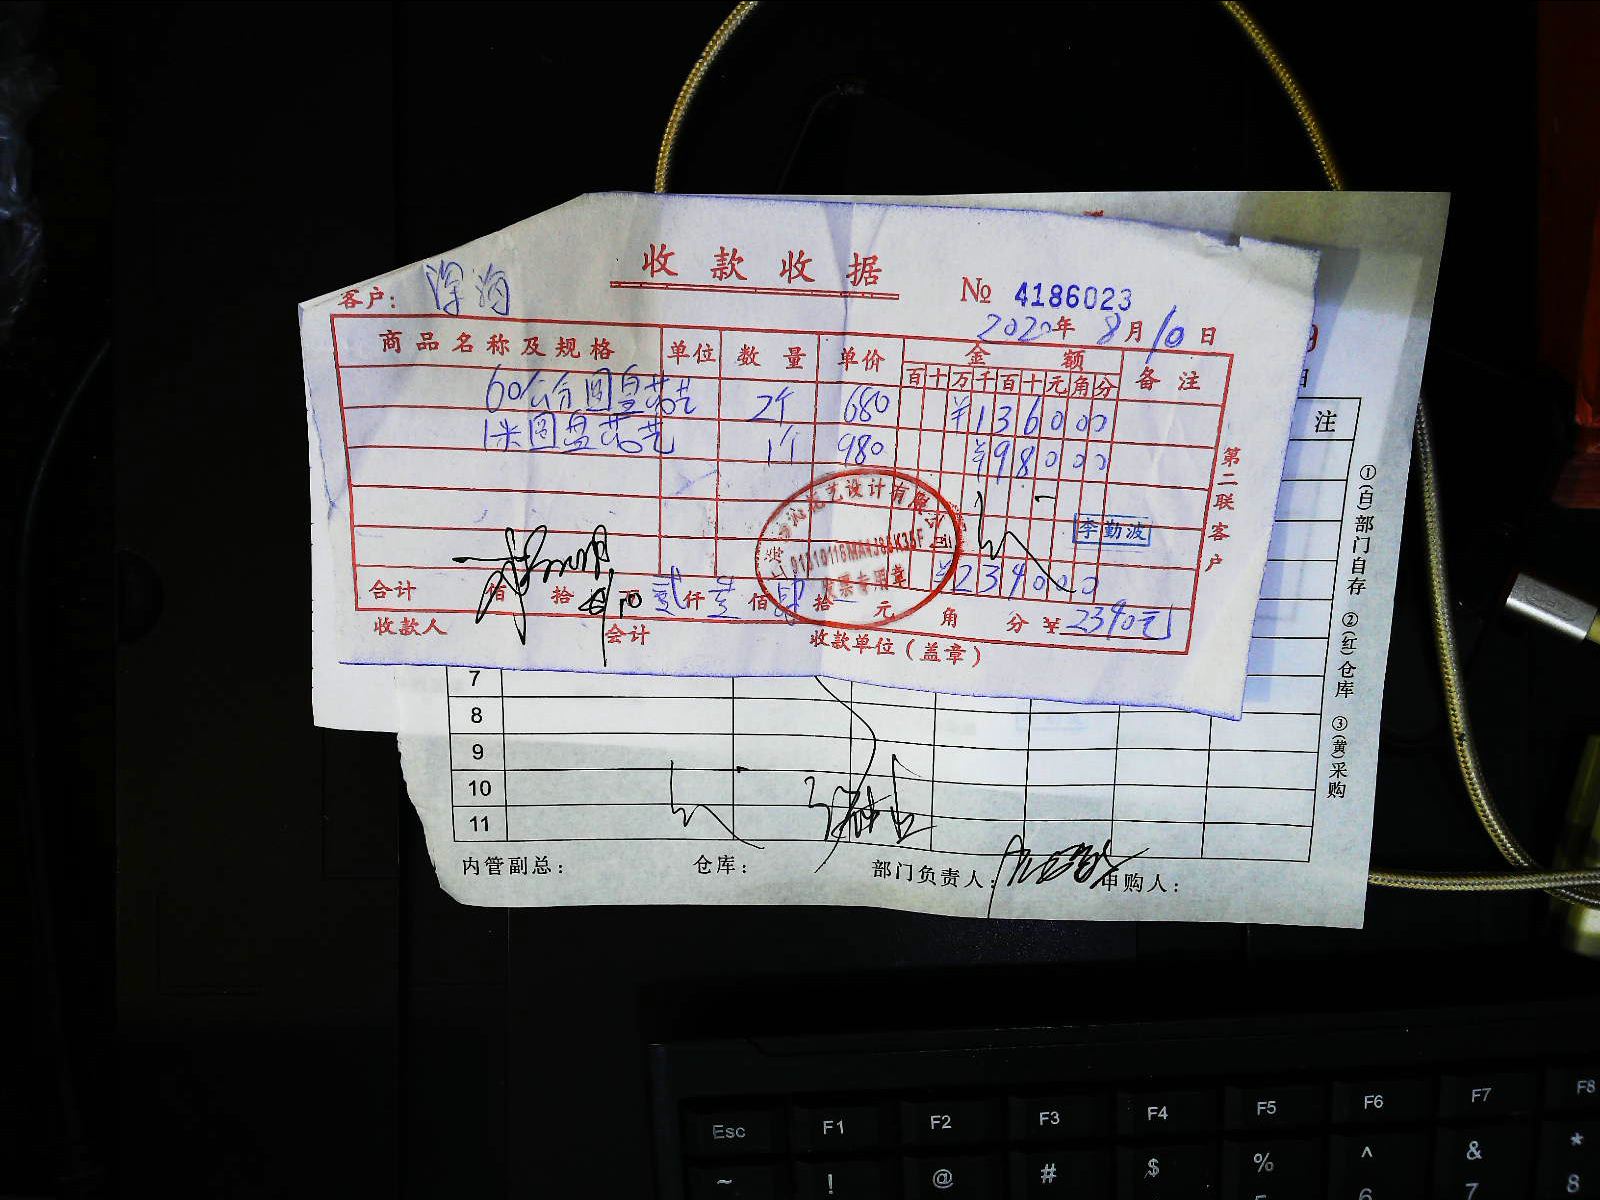 收款收据
№ 4186023
客户: 深海
2020年 8月 10日
商品名称及规格 单位 数量 单价 金额 备注
百 十 万 千 百 十 元 角 分
60公分圆盘花艺 2个 680 ¥1360 00
1米圆盘花艺 1个 980 ¥980 00
李勤波
¥2340 00
合计 佰 拾 贰仟 叁佰 肆拾 元 角 分 ¥2340元
收款人 会计 收款单位(盖章)
第二联客户
发票专用章
注
7
8
9
10
11
内管副总: 仓库: 部门负责人: 申购人:
①(白)部门自存 ②(红)仓库 ③(黄)采购
Esc F1 F2 F3 F4 F5 F6 F7 F8
~ ! @ # $ % ^ & *
6 7 8